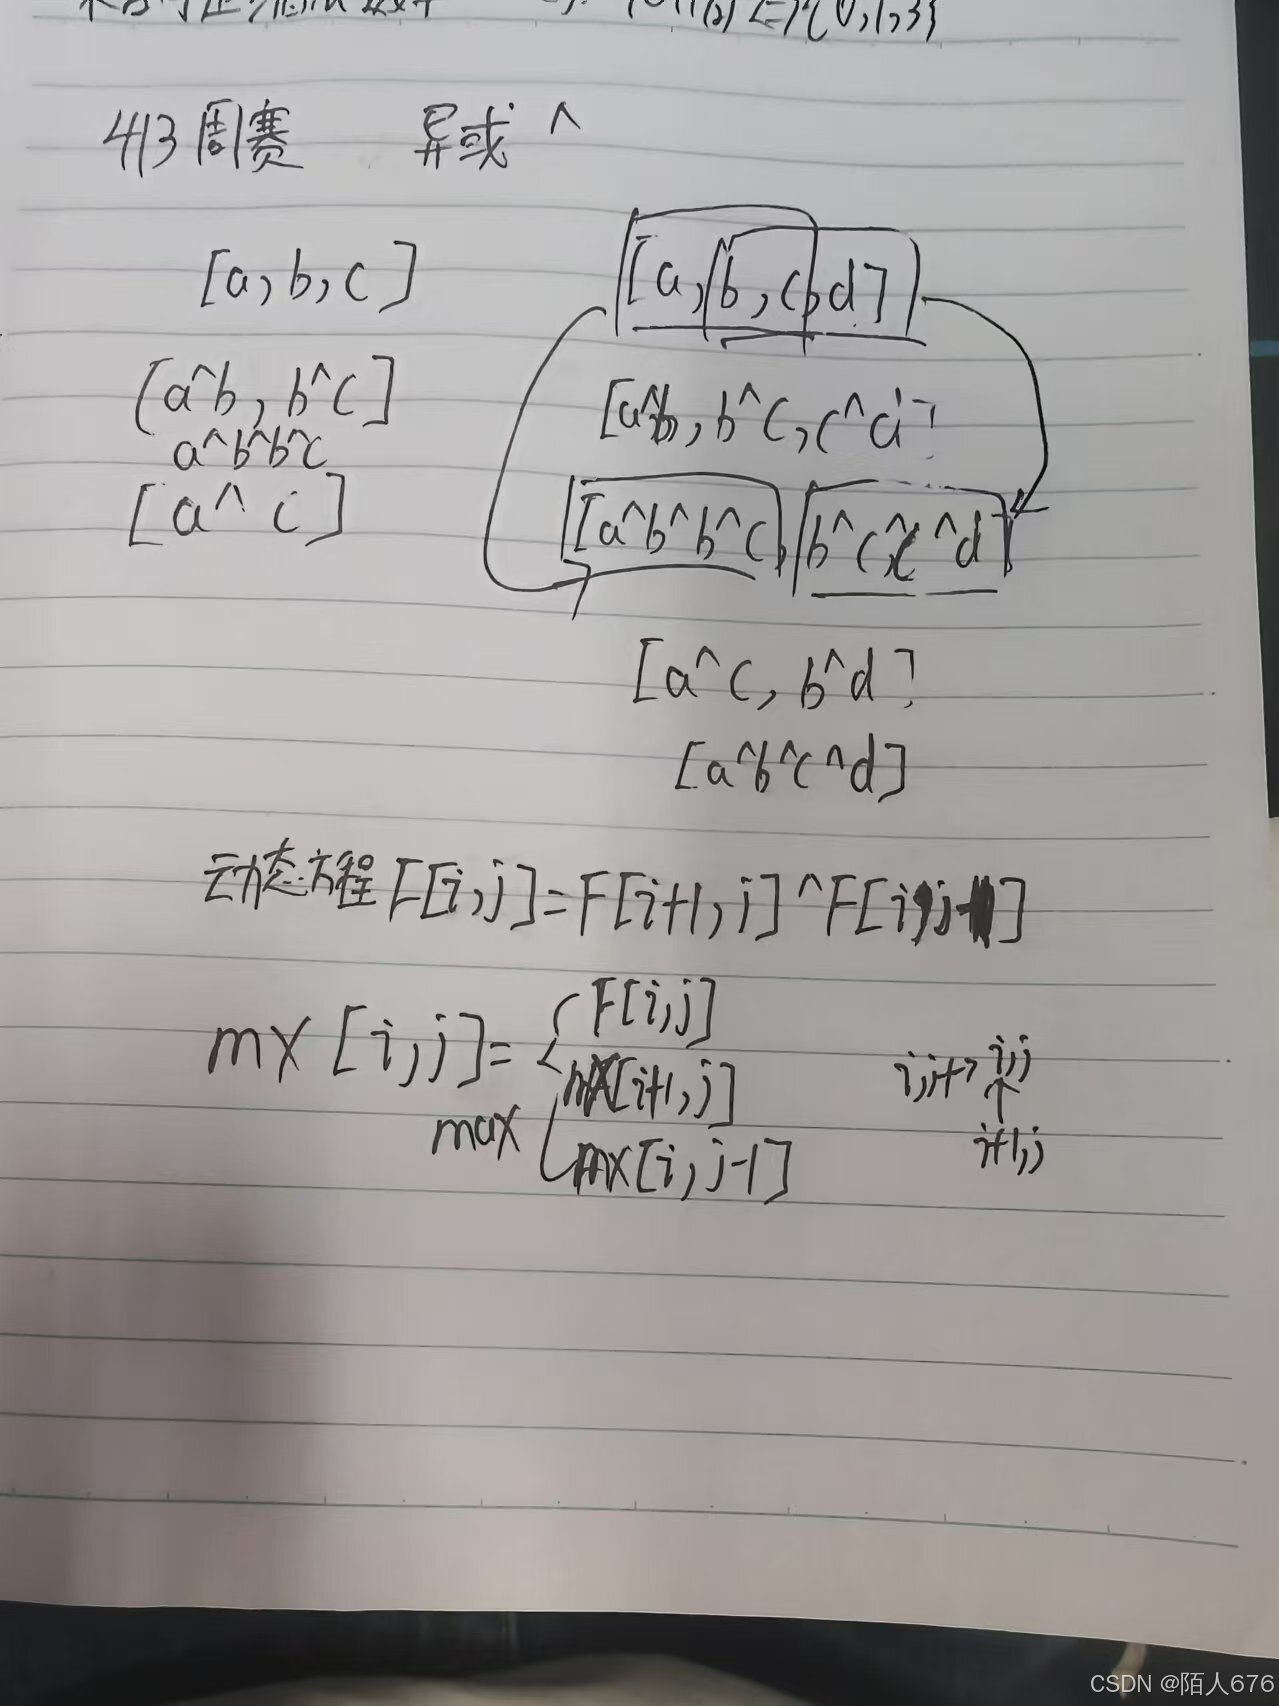 413周赛 异或 ^
[a,b,c]
[a^b, b^c]
a^b^b^c
[a^c]
[a,b,c,d]
[a^b,b^c,c^d]
[a^b^b^c, b^c^c^d]
[a^c, b^d]
[a^b^c^d]
动态方程F[i,j]=F[i+1,j]^F[i,j-1]
mx[i,j]= F[i,j]
mx[i+1,j]
max
mx[i,j-1]
i,j
i+1,j
CSDN @陌人676